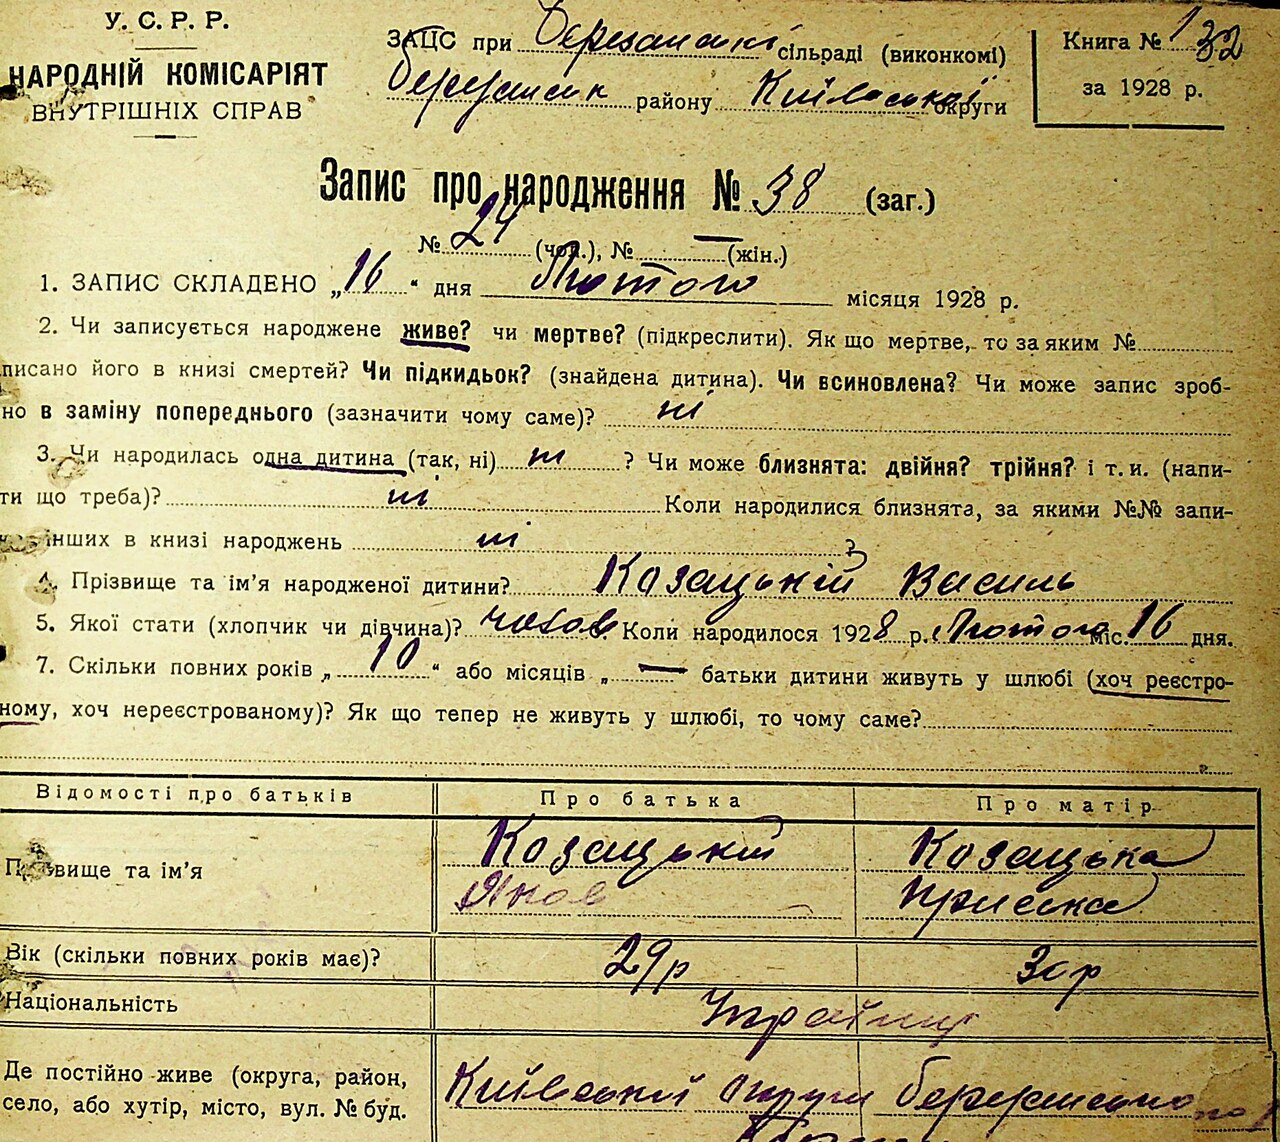 У. С. Р. Р.
НАРОДНІЙ КОМІСАРІЯТ
ВНУТРІШНІХ СПРАВ
ЗАЦС при сільраді (виконкомі)
району Київської округи
Книга № 132
за 1928 р.
Запис про народження № 38 (заг.)
№ 24 (чол.), № — (жін.)
1. ЗАПИС СКЛАДЕНО „16“ дня Лютого місяця 1928 р.
2. Чи записується народжене живе? чи мертве? (підкреслити). Як що мертве, то за яким №
писано його в книзі смертей? Чи підкидьок? (знайдена дитина). Чи всиновлена? Чи може запис зроб-
но в заміну попереднього (зазначити чому саме)? ні
3. Чи народилась одна дитина (так, ні) ні ? Чи може близнята: двійня? трійня? і т. и. (напи-
ти що треба)? ні Коли народилися близнята, за якими №№ запи-
інших в книзі народжень ні ?
4. Прізвище та ім'я народженої дитини? Козацькій Василь
5. Якої стати (хлопчик чи дівчина)? Коли народилося 1928 р. Лютого міс. 16 дня.
7. Скільки повних років „10“ або місяців „— батьки дитини живуть у шлюбі (хоч реєстро-
ному, хоч нереєстрованому)? Як що тепер не живуть у шлюбі, то чому саме?
Відомості про батьків Про батька Про матір
Прізвище та ім'я Козацькій Козацька
Яков Приська
Вік (скільки повних років має)? 29р 30р
Національність Українці
Де постійно живе (округа, район,
село, або хутір, місто, вул. № буд.
Київській округи